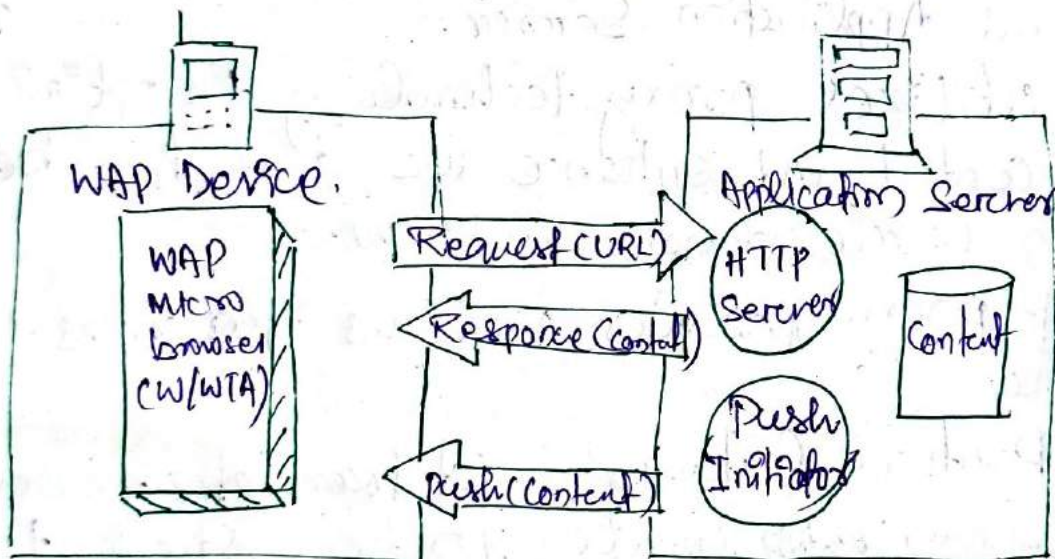 WAP Device.
WAP
Micro
browser
(W/WTA)
Request (URL)
Response (contat)
push (content)
Application Server
HTTP
Server
Content
Push
Initiator